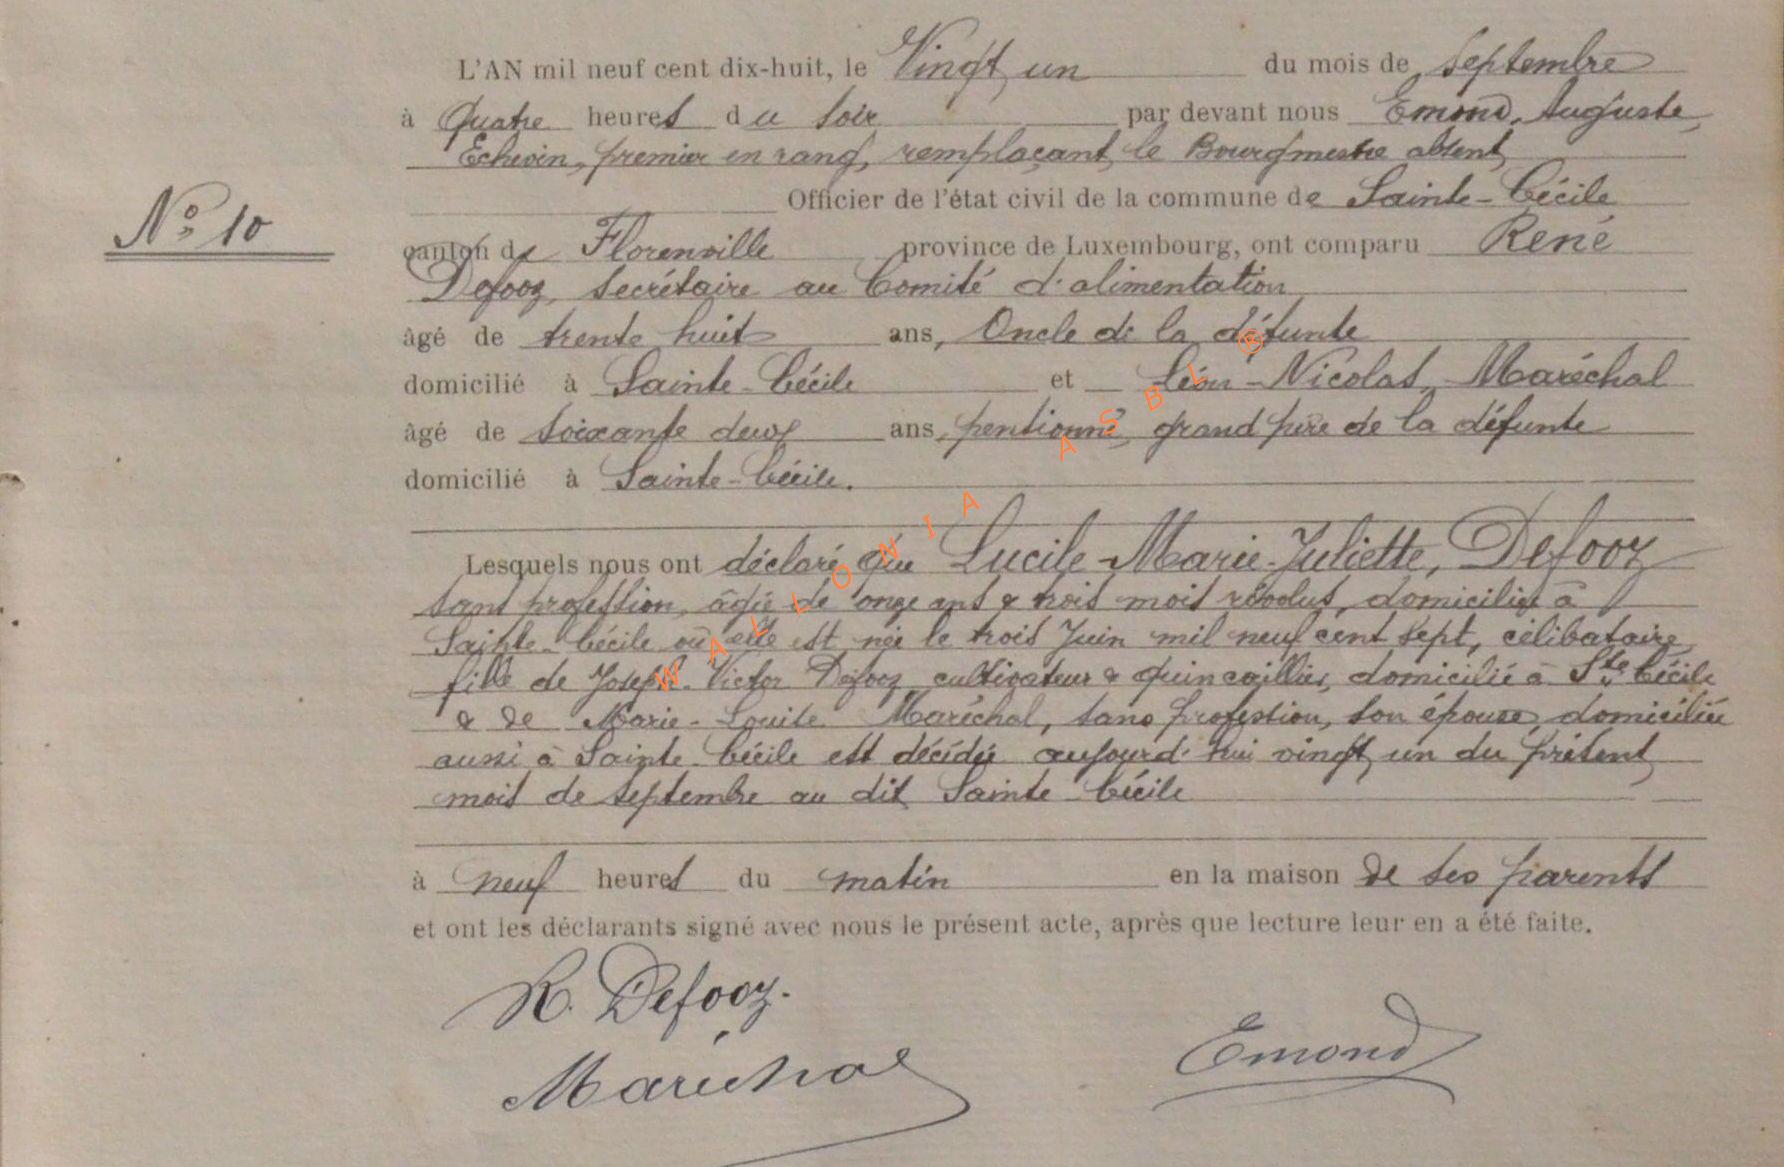 L'AN mil neuf cent dix-huit, le Vingt un du mois de Septembre
à Quatre heures du soir par devant nous Emond, Auguste,
Echevin, premier en rang, remplaçant le Bourgmestre absent
Officier de l'état civil de la commune de Sainte-Cécile
N° 10
canton de Florenville province de Luxembourg, ont comparu René
Defooz, secrétaire au Comité d'alimentation
âgé de trente huit ans, Oncle de la défunte
domicilié à Sainte-Cécile et Léon-Nicolas, Maréchal
âgé de soixante deux ans, pensionné, grand père de la défunte
domicilié à Sainte-Cécile.
Lesquels nous ont déclaré que Lucile-Marie-Juliette, Defooz
sans profession, âgée de onze ans & trois mois révolus, domiciliée à
Sainte-Cécile où elle est née le trois Juin mil neuf cent sept, célibataire
fille de Joseph-Victor Defooz cultivateur & quincaillier, domicilié à Ste Cécile
& de Marie-Louise Maréchal, sans profession, son épouse, domiciliée
aussi à Sainte-Cécile est décédée aujourd'hui vingt un du présent
mois de septembre au dit Sainte Cécile
à neuf heures du matin en la maison de ses parents
et ont les déclarants signé avec nous le présent acte, après que lecture leur en a été faite.
R. Defooz.
Maréchal
Emond
WALLONIA ASBL ®